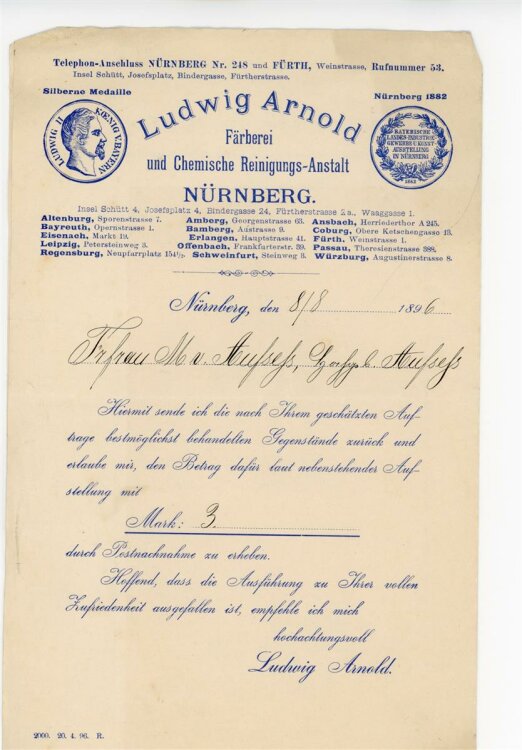 Telephon-Anschluss NÜRNBERG Nr. 248 und FÜRTH, Weinstrasse, Rufnummer 53.
Insel Schütt, Josefsplatz, Bindergasse, Fürtherstrasse.
Silberne Medaille
Nürnberg 1882
LUDWIG II KOENIG V. BAYERN
BAYERISCHE
LANDES-INDUSTRIE
GEWERBE U. KUNST
AUSSTELLUNG
IN NÜRNBERG
1882
Ludwig Arnold
Färberei
und Chemische Reinigungs-Anstalt
NÜRNBERG.
Insel Schütt 4, Josefsplatz 4, Bindergasse 24, Fürtherstrasse 2a., Waaggasse 1.
Altenburg, Sporenstrasse 7. Amberg, Georgenstrasse 63. Ansbach, Herriederthor A 245.
Bayreuth, Opernstrasse 1. Bamberg, Austrasse 9. Coburg, Obere Ketschengasse 13.
Eisenach, Markt 19. Erlangen, Hauptstrasse 41. Fürth, Weinstrasse 1.
Leipzig, Petersteinweg 3. Offenbach, Frankfurterstr. 39. Passau, Theresienstrasse 388.
Regensburg, Neupfarrplatz 154 1/2 Schweinfurt, Steinweg 3. Würzburg, Augustinerstrasse 8.
Nürnberg, den 8/8 1896
Frfrau M v. Aufsess, Aufsess
Hiermit sende ich die nach Ihrem geschätzten Auf-
trage bestmöglichst behandelten Gegenstände zurück und
erlaube mir, den Betrag dafür laut nebenstehender Auf-
stellung mit
Mark: 3.
durch Postnachnahme zu erheben.
Hoffend, dass die Ausführung zu Ihrer vollen
Zufriedenheit ausgefallen ist, empfehle ich mich
hochachtungsvoll
Ludwig Arnold.
2000. 20. 4. 96. R.